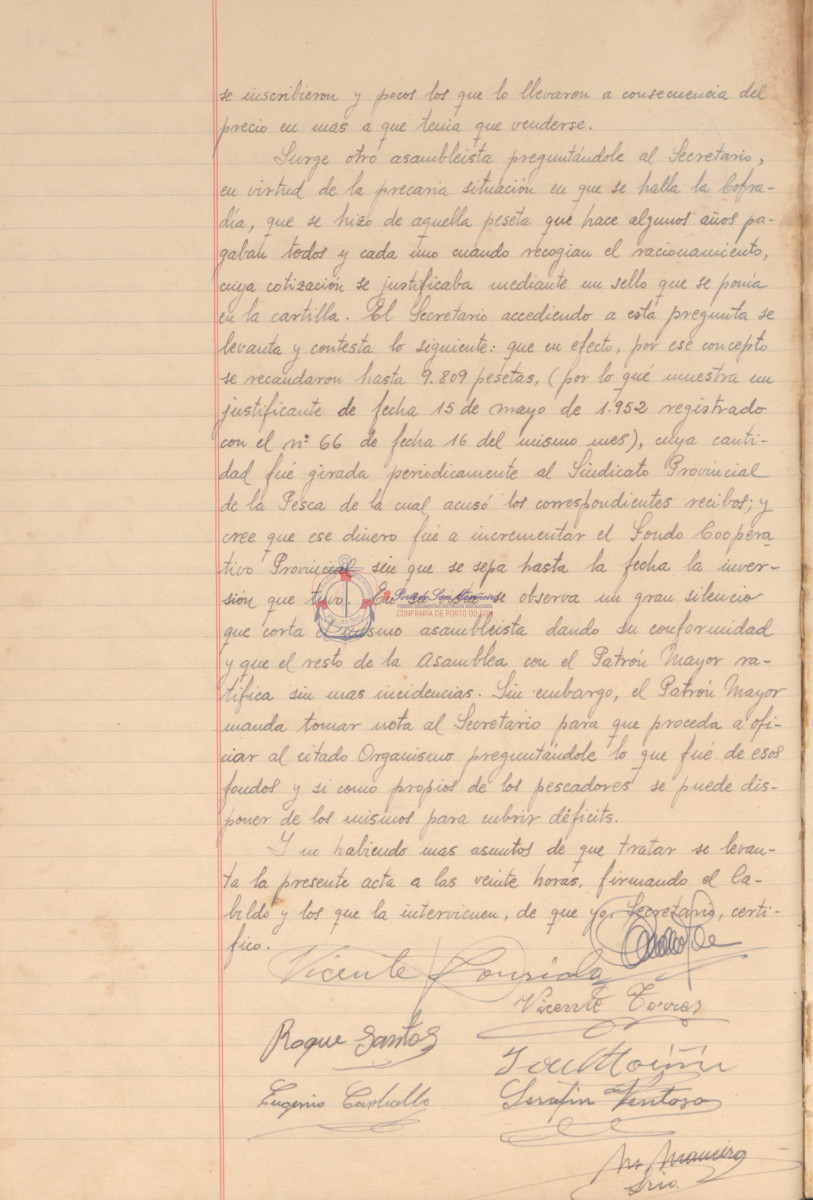 se inscribieron y pocos los que lo llevaron a consecuencia del
precio en mas a que tenia que venderse.
Surge otro asambleista preguntándole al Secretario,
en virtud de la precaria situación en que se halla la Cofra-
día, que se hizo de aquella peseta que hace algunos años pa-
gaban todos y cada uno cuando recogian el racionamiento,
cuya cotización se justificaba mediante un sello que se ponía
en la cartilla. El Secretario accediendo a esta pregunta se
levanta y contesta lo siguiente: que en efecto, por ese concepto
se recaudaron hasta 9.809 pesetas, (por lo qué muestra un
justificante de fecha 15 de mayo de 1.952 registrado
con el nº 66 de fecha 16 del mismo mes), cuya canti-
dad fué girada periódicamente al Sindicato Provincial
de la Pesca de la cual acusó los correspondientes recibos; y
cree que ese dinero fué a incrementar el Fondo Coopera-
tivo Provincial sin que se sepa hasta la fecha la inver-
sión que tuvo. En se observa un gran silencio
CONFRARIA DE PORTO DO SON
que corta el mismo asambleista dando su conformidad
y que el resto de la Asamblea con el Patrón Mayor ra-
tifica sin mas incidencias. Sin embargo, el Patrón Mayor
manda tomar nota al Secretario para que proceda a ofi-
ciar al citado Organismo preguntándole lo que fué de esos
fondos y si como propios de los pescadores se puede dis-
poner de los mismos para cubrir déficits.
Y no habiendo mas asuntos de que tratar se levan-
ta la presente acta a las veinte horas, firmando el Ca-
bildo y los que la intervienen, de que yo, Secretario, certi-
fico.
Vicente
Vicente Torres
Roque Santos
Eugenio Carballo
Serafin Ventoso
M. Maneiro
Srio.